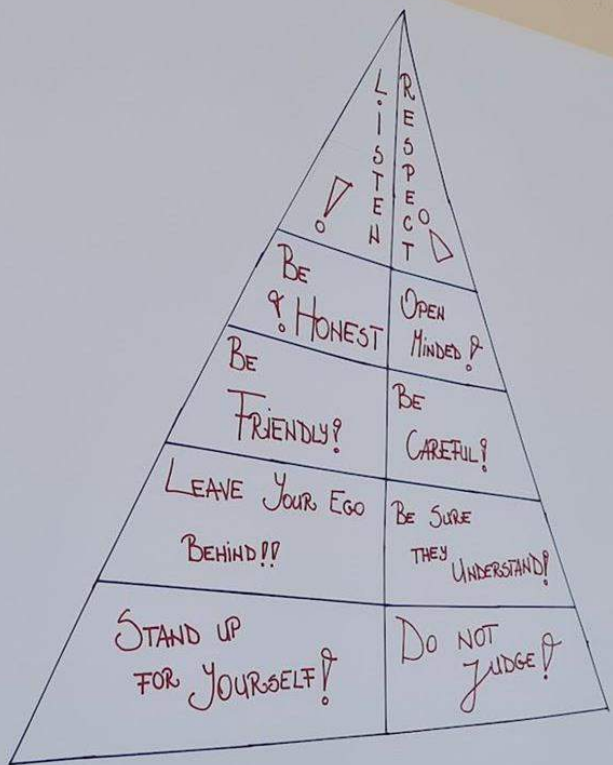 LISTEN !
RESPECT !
BE
! HONEST
OPEN
MINDED !
BE
FRIENDLY!
BE
CAREFUL!
LEAVE YOUR EGO
BEHIND!!
BE SURE
THEY UNDERSTAND!
STAND UP
FOR YOURSELF!
DO NOT
JUDGE!